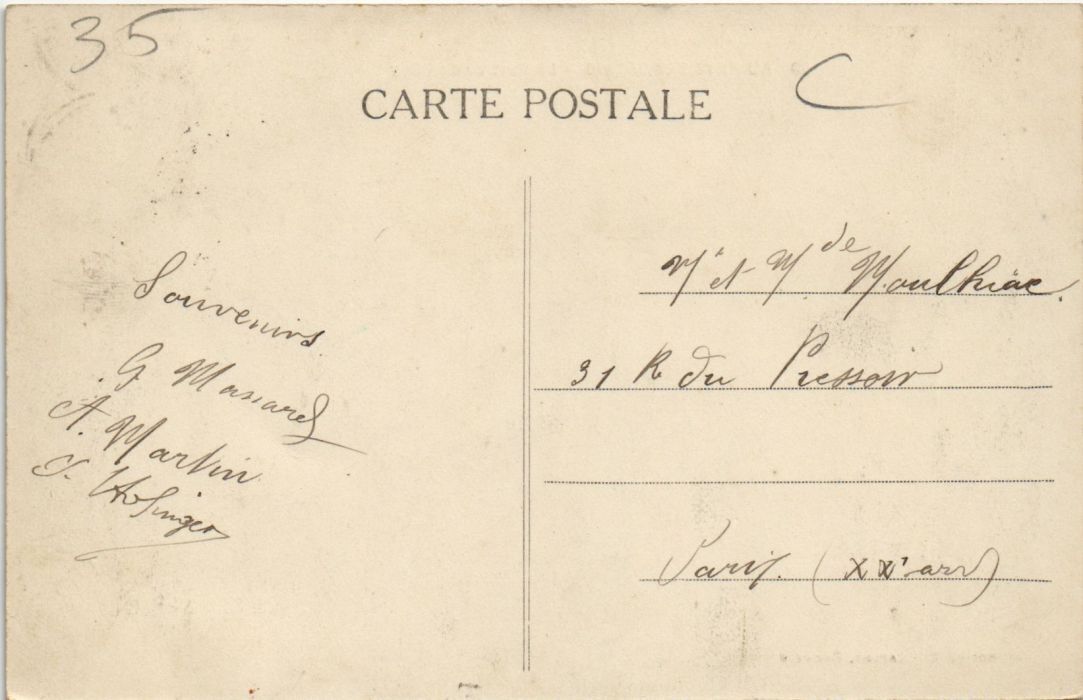 35
C
CARTE POSTALE
Souvenirs
G Massard
A. Martin
Mr et Mde Moulhiac.
31 R du Pressoir
Paris. (XXe arr)